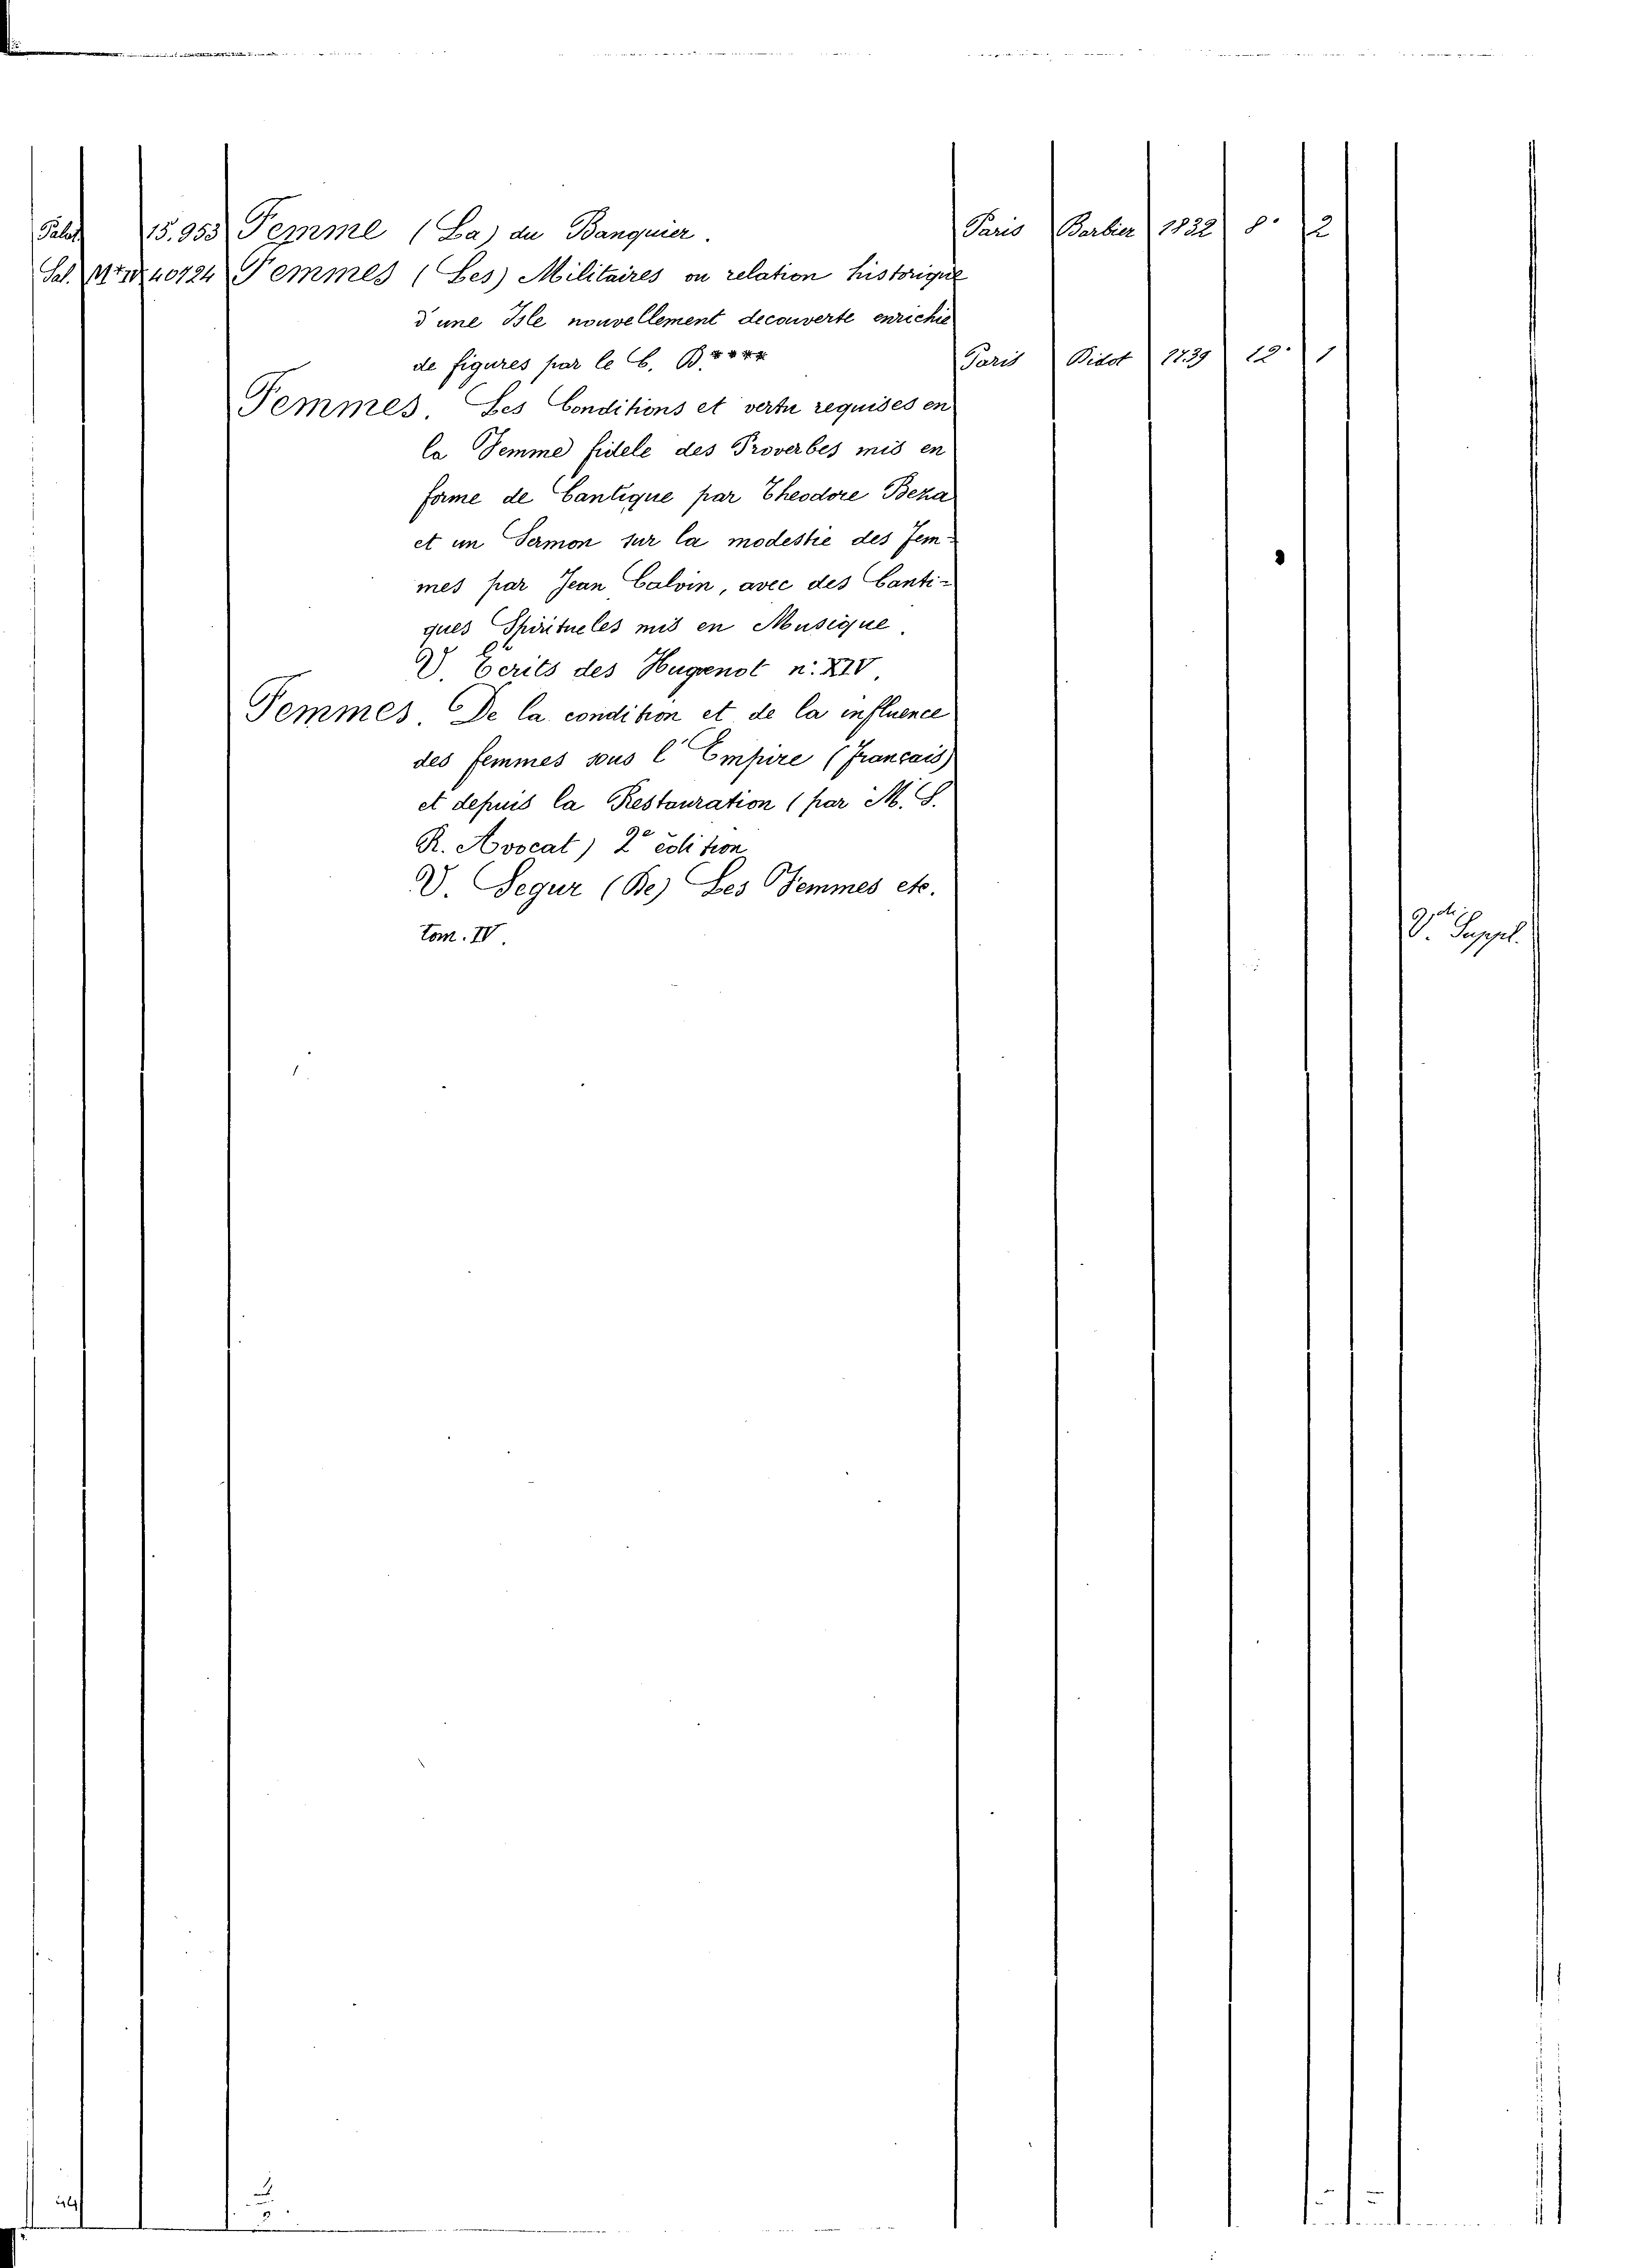 Palat 15.953 Femme (La) du Banquier. Paris Barbier 1832 8.° 2
Pal. 40724 Femmes (Les) Militaires ou relation historique
d'une Isle nouvellement decouverte enrichie
de figures par le C. B.**** Paris Didot 1739 12.° 1
Femmes. Les Conditions et vertu requises en
la Femme fidele des Proverbes mis en
forme de Cantique par Theodore Beza
et un Sermon sur la modestie des Fem-
mes par Jean Calvin, avec des Canti-
ques Spiritueles mis en Musique.
V. Ecrits des Hugenot n. XIV.
Femmes. De la condition et de la influence
des femmes sous l'Empire (Français)
et depuis la Restauration (par M. S.
R. Avocat) 2.e edition
V. Segur (De) Les Femmes etc.
tom. IV. V. Suppl.